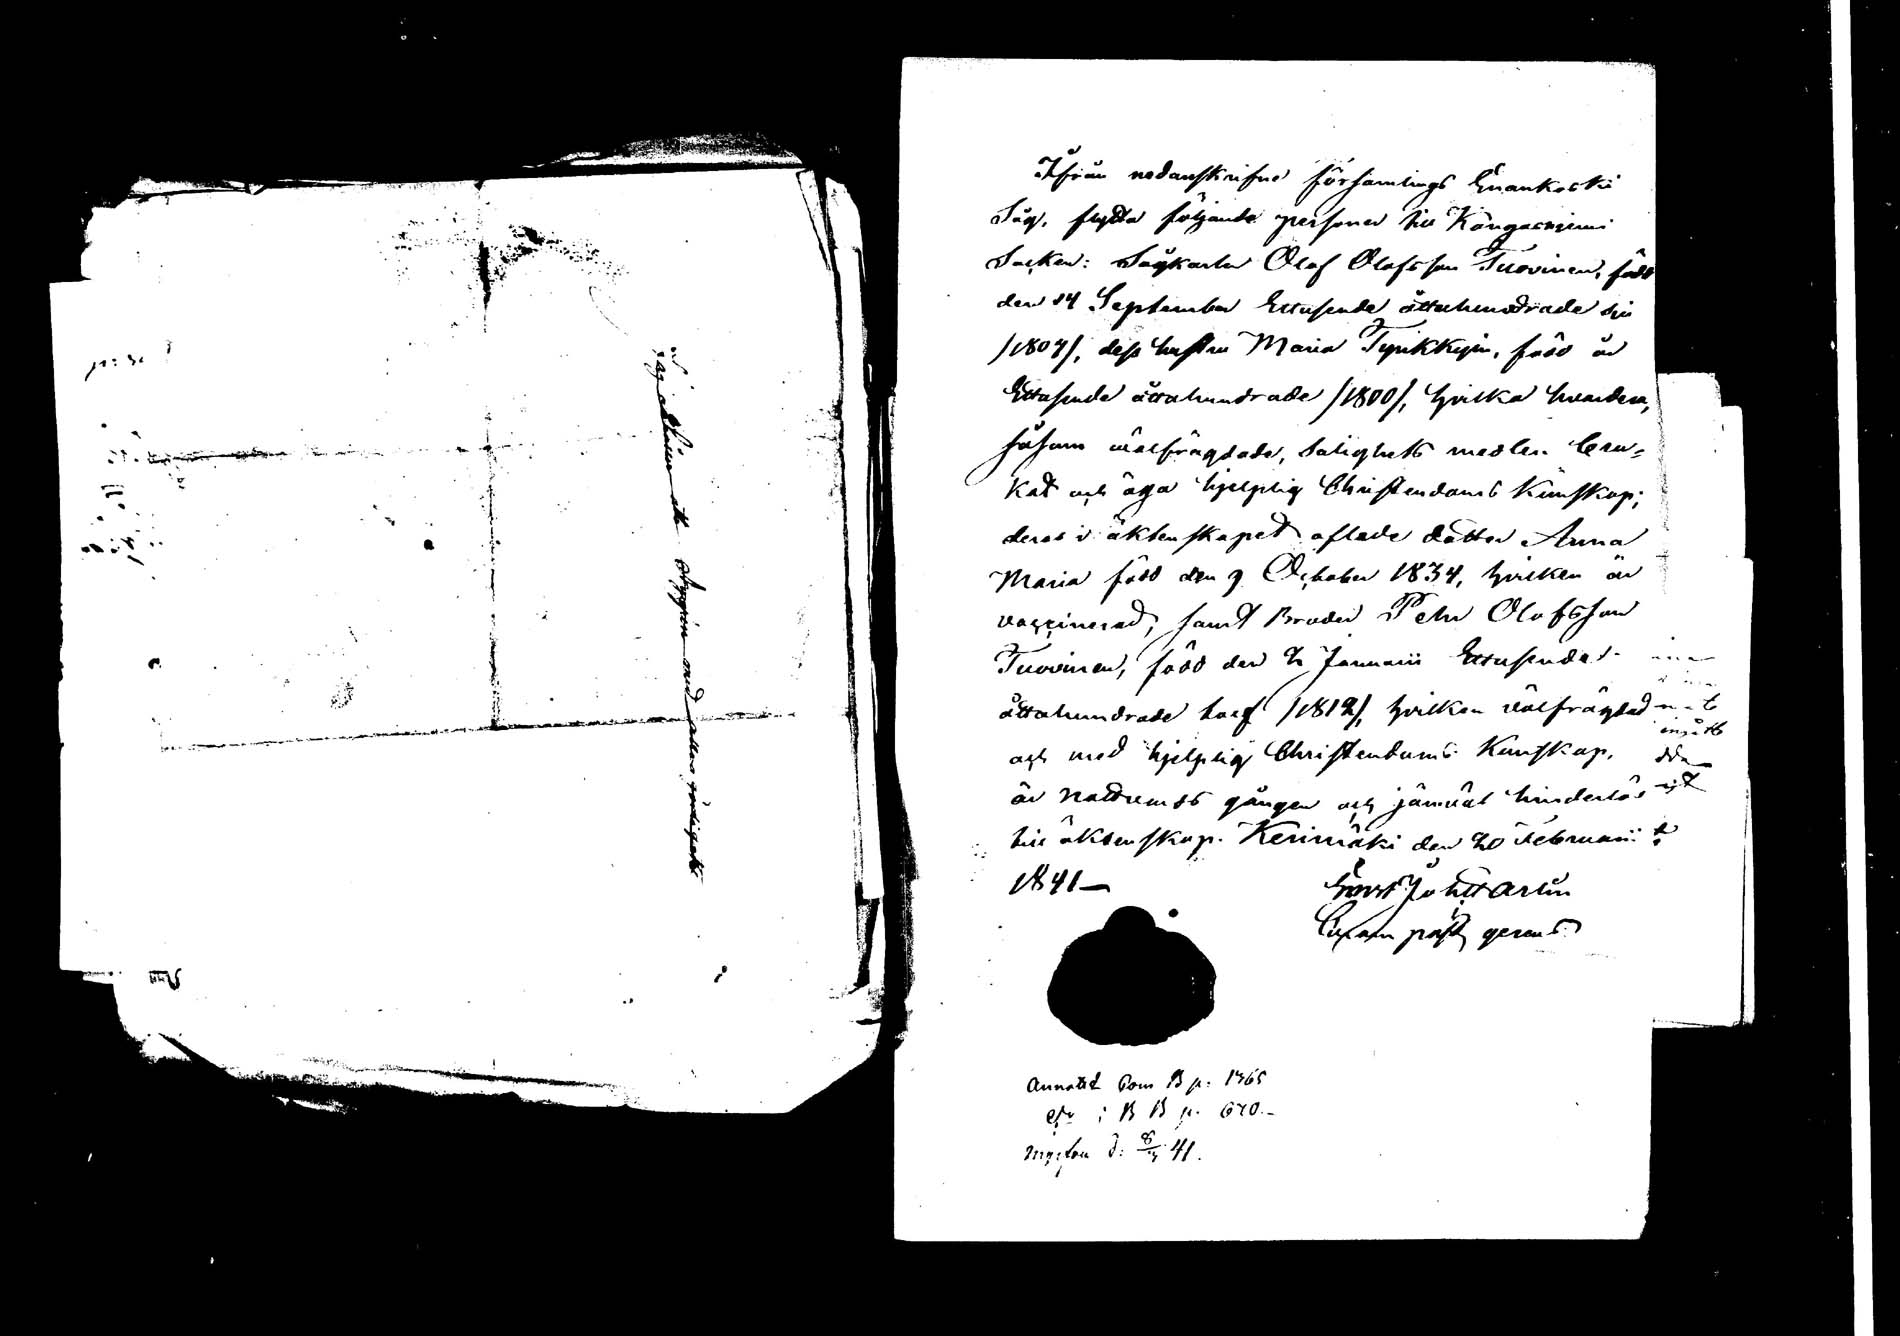 Ifrån nedanskrifne församlings Enankoski
Såg, flytta följande personer till Kangasniemi
Socken: Sågkarlen Olof Olofsson Tuovinen, född
den 14 September Ettusende åttahundrade sju
/1807/, dess hustru Maria Tynkkyin, född år
Ettusende åttahundrade /1800/, hvilka hvardera,
såsom välfrägdade, salighets medlen bru-
kat och äga hjelplig Christendoms kunskap;
deras i äktenskapet aflade dotter Anna
Maria född den 9 October 1834, hvilken är
vaccinerad, samt Broder Pehr Olofsson
Tuovinen, född den 2 Januarii Ettusende
åttahundrade tolf /1812/, hvilken välfrägdad
och med hjelplig Christendoms kunskap,
är nattvards gången och jämväl hinderlös
till äktenskap. Kerimäki den 20 Februarii
1841
past. gerens
Annoterat Com B p. 1365
i B B p. 670.
41.